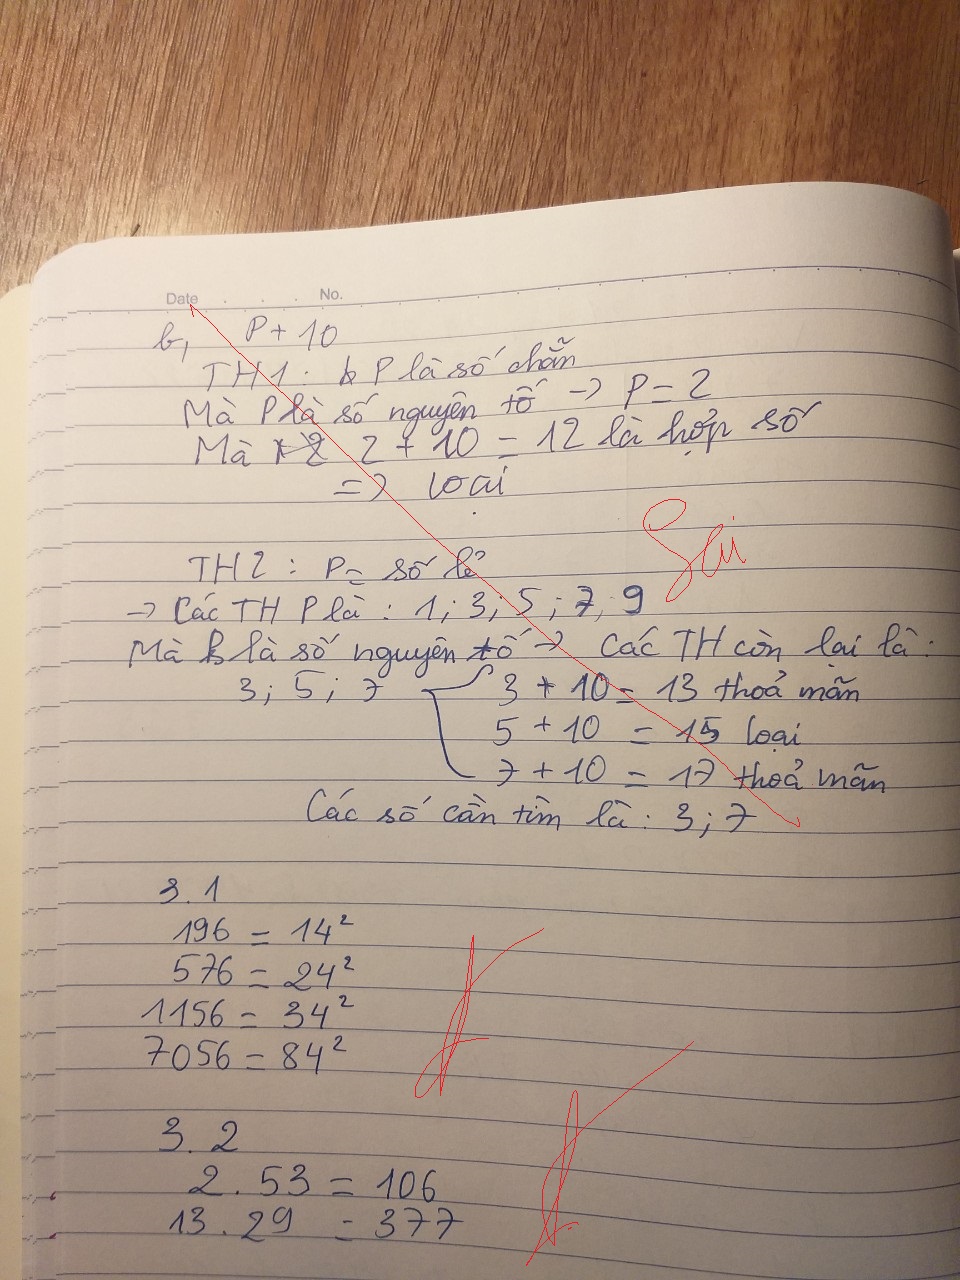 Date No.
b, P + 10
TH1 : P là số chẵn
Mà P là số nguyên tố -> P = 2
Mà 2 + 10 = 12 là hợp số
=> loại
Sai
TH2 : P = số lẻ
-> Các TH P là : 1 ; 3 ; 5 ; 7 ; 9
Mà P là số nguyên tố -> Các TH còn lại là :
3 ; 5 ; 7 3 + 10 = 13 thoả mãn
5 + 10 = 15 loại
7 + 10 = 17 thoả mãn
Các số cần tìm là : 3 ; 7
3.1
196 = 14²
576 = 24²
1156 = 34²
7056 = 84²
3.2
2 . 53 = 106
13 . 29 = 377